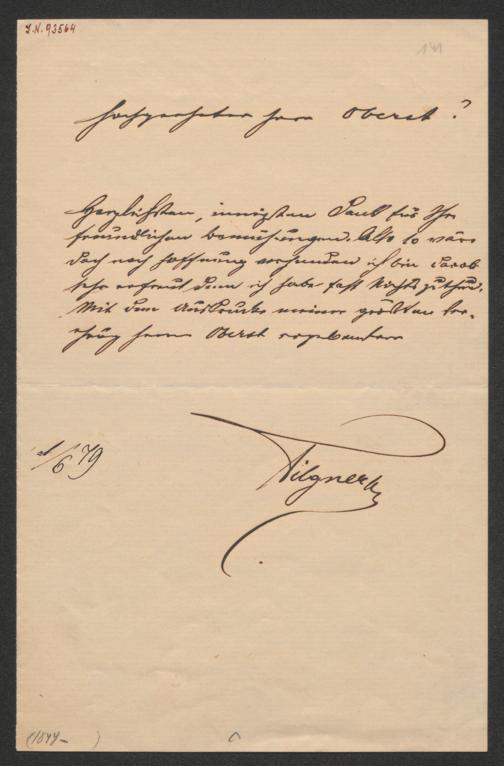 J.N. 93564
141
Hochgeehrter Herr Oberst!
Herzlichsten, innigsten Dank für Ihre
freundlichen Bemühungen. Also so wäre
doch noch Hoffnung vorhanden ich bin darob
sehr erfreut denn ich habe fast Nichts zu thun.
Mit dem Ausdrucke meiner größten Ver-
ehrung Herrn Oberst ergebenster
Tilgner
4/6 79
(1844- )